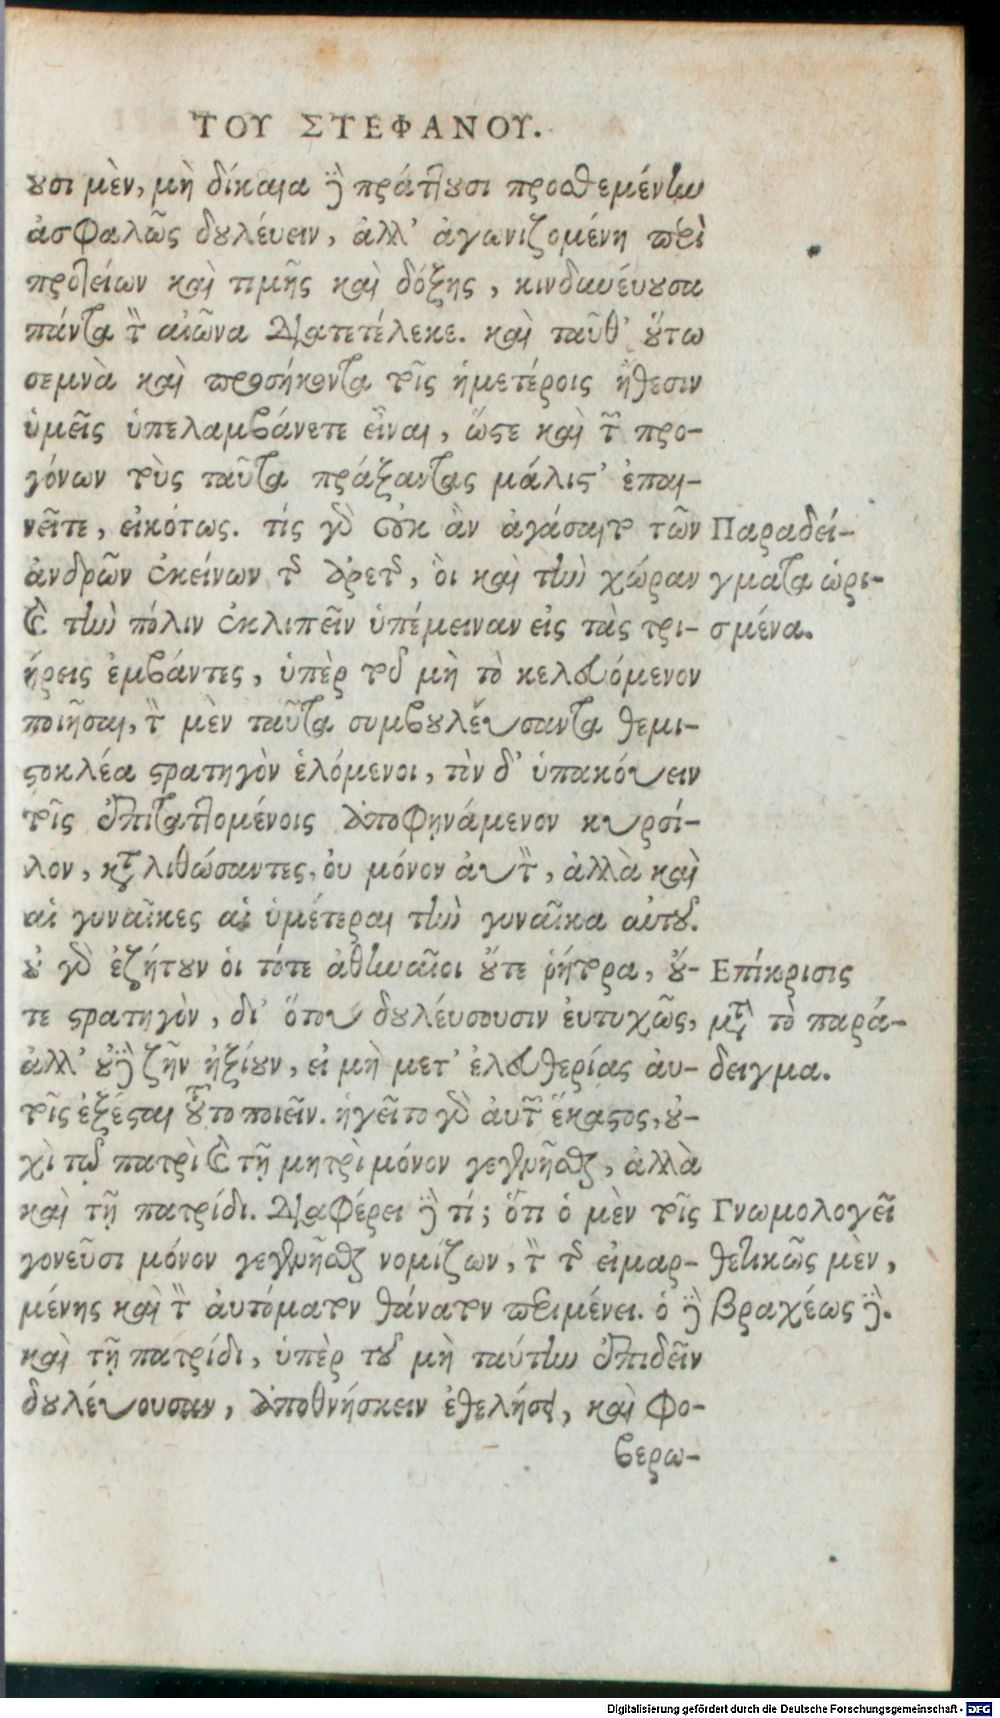 ΤΟΥ ΣΤΕΦΑΝΟΥ.
ουσι μὲν, μὴ δίκαια δὲ πράττουσι προσθεμένην
ἀσφαλῶς δουλέυειν, ἀλλ' ἀγωνιζομένη περὶ
πρωτείων καὶ τιμῆς καὶ δόξης, κινδυνέυουσα
πάντα τὸν αἰῶνα διατετέλεκε. καὶ ταῦθ' οὕτω
σεμνὰ καὶ προσήκοντα τοῖς ἡμετέροις ἤθεσιν
ὑμεῖς ὑπελαμβάνετε εἶναι, ὥστε καὶ τῶν προ-
γόνων τοὺς ταῦτα πράξαντας μάλιστ' ἐπαι-
νεῖτε, εἰκότως. τίς γὰρ οὐκ ἂν ἀγάσαιτο τῶν
ἀνδρῶν ἐκείνων τῆς ἀρετῆς, ὁι καὶ τὴν χώραν
καὶ τὴν πόλιν ἐκλιπεῖν ὑπέμειναν εἰς τὰς τρι-
ήρεις ἐμβάντες, ὑπὲρ τοῦ μὴ τὸ κελευόμενον
ποιῆσαι, τὸν μὲν ταῦτα συμβουλέυσαντα θεμι-
στοκλέα στρατηγὸν ἑλόμενοι, τὸν δ' ὑπακόυειν
τοῖς ἐπιταττομένοις ἀποφηνάμενον κυρσί-
λον, καταλιθώσαντες, ὀυ μόνον ἀυτὸν, ἀλλὰ καὶ
αἱ γυναῖκες αἱ ὑμέτεραι τὴν γυναῖκα αὐτοῦ.
οὐ γὰρ ἐζήτουν ὁι τότε ἀθηναῖοι οὔτε ῥήτορα, οὔ-
τε στρατηγὸν, δι' ὅτου δουλέυσουσιν ἐυτυχῶς,
ἀλλ' οὐδὲ ζῆν ἠξίουν, εἰ μὴ μετ' ἐλευθερίας ἀυ-
τοῖς ἐξέσται τοῦτο ποιεῖν. ἡγεῖτο γὰρ ἀυτῶν ἕκαστος, οὐ-
χὶ τῷ πατρὶ καὶ τῇ μητρὶ μόνον γεγενῆσθαι, ἀλλὰ
καὶ τῇ πατρίδι. διαφέρει δὲ τί; ὅτι ὁ μὲν τοῖς
γονεῦσι μόνον γεγενῆσθαι νομίζων, τὸν τῆς εἱμαρ-
μένης καὶ τὸν ἀυτόματον θάνατον περιμένει. ὁ δὲ
καὶ τῇ πατρίδι, ὑπὲρ τοῦ μὴ ταύτην ἐπιδεῖν
δουλέυουσαν, ἀποθνήσκειν ἐθελήσει, καὶ φο-
βερω-
Παραδεί-
γματα ὡρι-
σμένα.
Επίκρισις
μετὰ τὸ παρά-
δειγμα.
Γνωμολογεῖ
θετικῶς μὲν,
βραχέως δὲ.
Digitalisierung gefördert durch die Deutsche Forschungsgemeinschaft - DFG